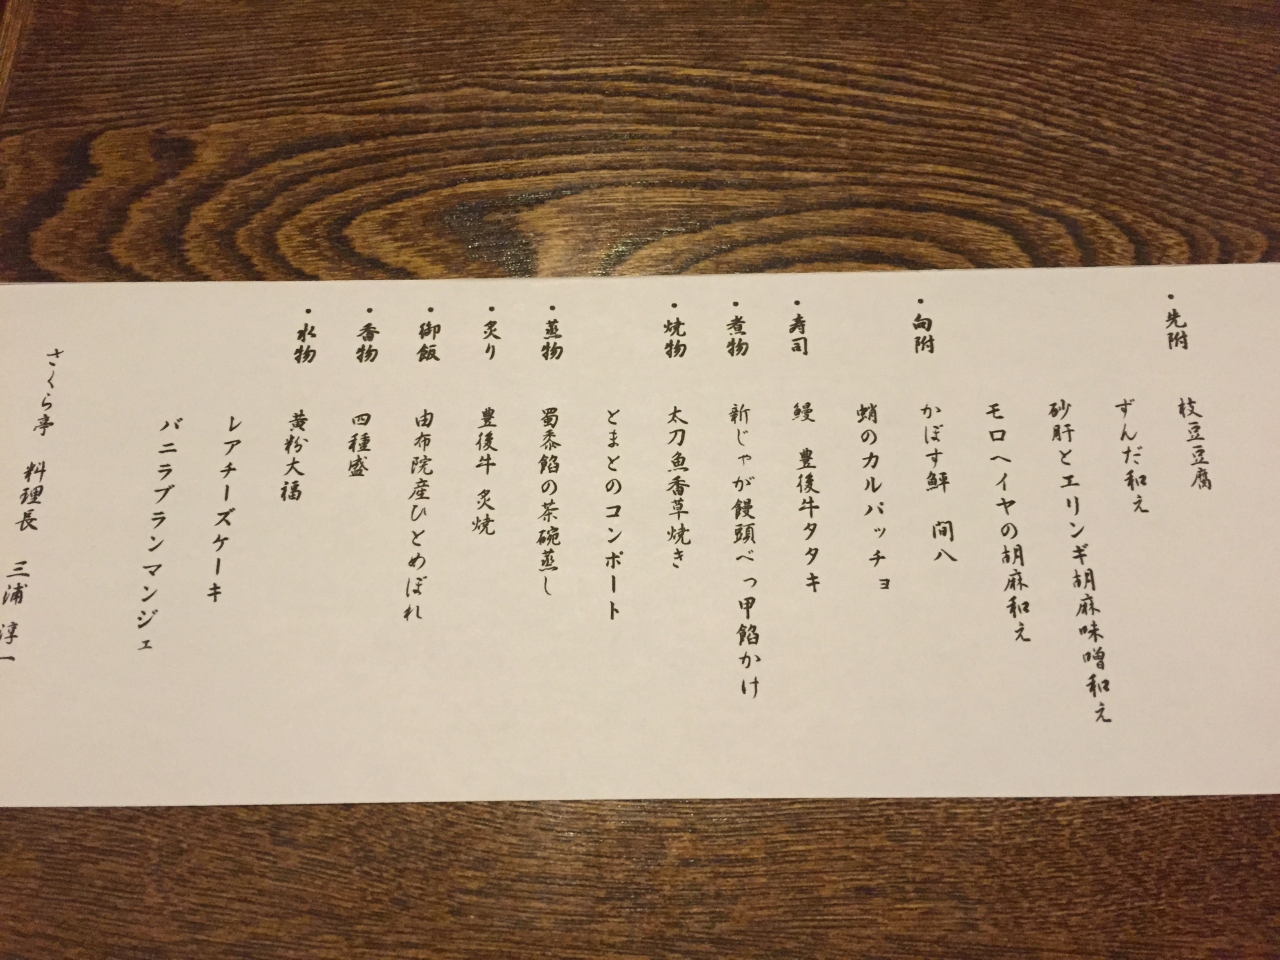 ・先附 枝豆豆腐
ずんだ和え
砂肝とエリンギ胡麻味噌和え
モロヘイヤの胡麻和え
・向附 かぼす鮃 間八
蛸のカルパッチョ
・寿司 鰻 豊後牛タタキ
・煮物 新じゃが饅頭べっ甲餡かけ
・焼物 太刀魚香草焼き
とまとのコンポート
・蒸物 蜀黍餡の茶碗蒸し
・炙り 豊後牛 炙焼
・御飯 由布院産ひとめぼれ
・香物 四種盛
・水物 黄粉大福
レアチーズケーキ
バニラブランマンジェ
さくら亭 料理長 三浦 淳一